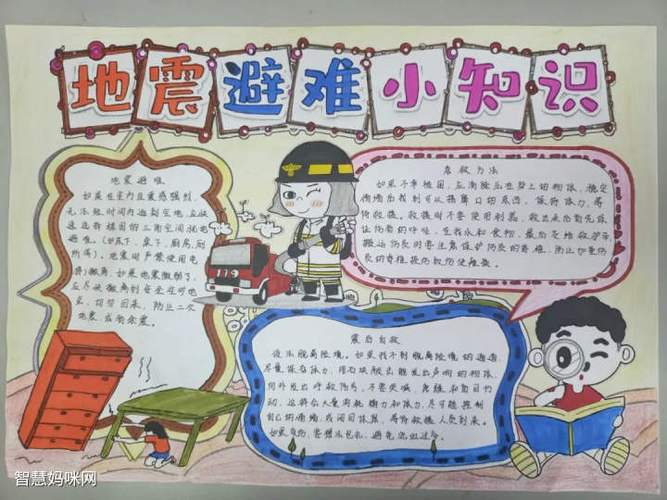 地震避难小知识
地震避难
如果在室内且震感强烈，
无法短时间内逃到空地，应快
速急转楼固的三角空间找地
避难。(如床下、桌下、厨房、厕
所等)。地震时严禁使用电
梯)撤离。如果地震微弱了，
应尽快撤离到安全空旷地
带，切勿回来，防止二次
地震或有余震。
急救方法
如果不幸被困，应清除压在身上的物体，
保存体力，等
待救援。
震后自救
设法脱离险境。如果找不到脱离险境的通道，
尽量保存体力，用石块敲击能发出声响的物体，
向外发出呼救信号，不要哭喊、急躁和盲目行
动，这样会大量消耗精力和体力，尽可能控制
自己的情绪，或闭目休息，等待救援人员到来。
如果受伤，要想法包扎，避免流血过多。
智慧妈咪网